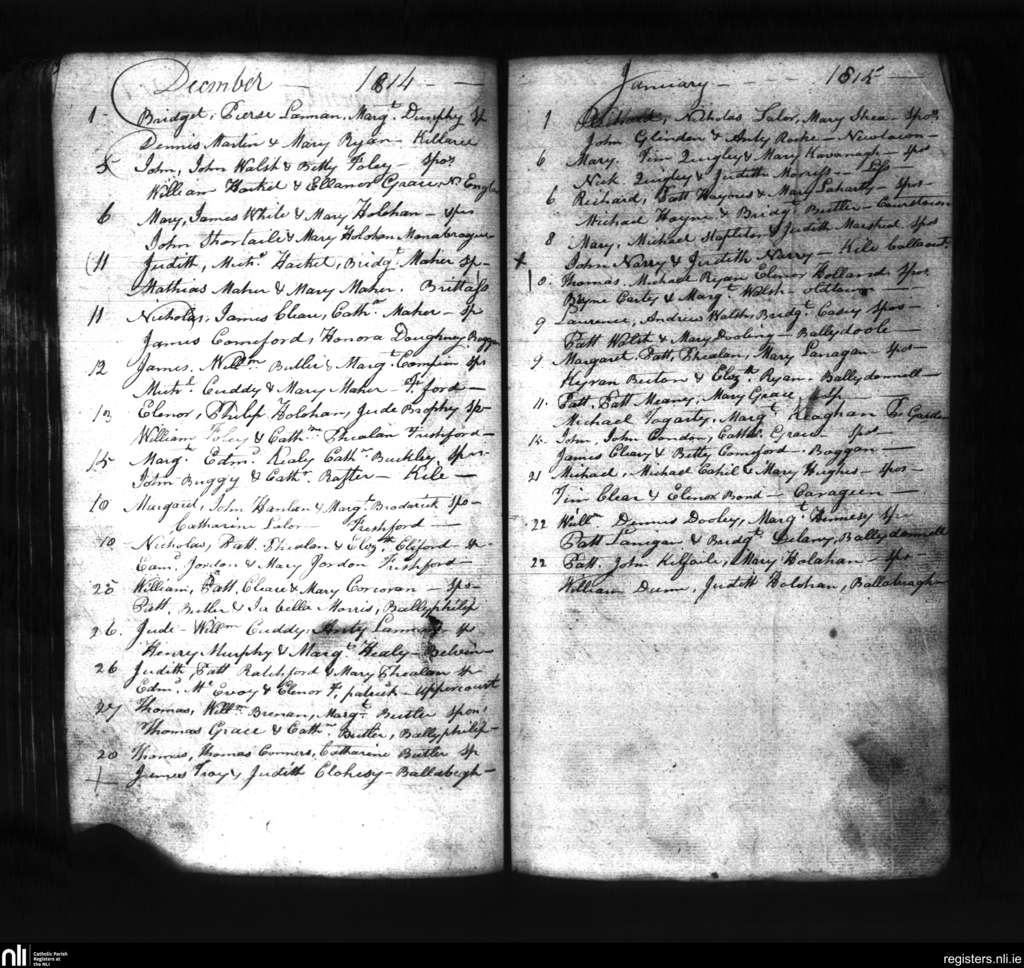 December 1814
1 Bridget, Pierse Lannan, Margt. Dunphy Sp
Dennis Martin & Mary Ryan - Killaree
5 John, John Walsh & Betty Foley - Spos
William Hacket & Ellanor Grace, N. Engla
6 Mary, James White & Mary Holohan - spos
John Shortaile & Mary Holohan Monabrogue
11 Judith, Michl. Hacket, Bridgt. Maher Sp-
Mathias Maher & Mary Maher. Brittass
11 Nicholas, James Cleare, Cathn. Maher - Sp
James Comeford, Honora Doughney, Boggan
12 James, Willm Butler & Margt. Sp
Michl. Cuddy & Mary Maher - F. ford -
13 Elenor, Philip Holohan, Jude Brophy Sp-
William Foley & Cathn. Phealan Freshford -
15 Margt. Edmd. Kealy Cathn. Buckley Spon-
John Buggy & Cathn. Rafter - Kile -
10 Margaret, John Hanlan & Margt. Broderick Spo-
Catharin Lalor - Freshford -
18 Nicholas, Patt. Phealan & Elizth. Cliford
Edmd. Jordon & Mary Jordon Freshford -
25 William, Patt Cleare & Mary Corcoran - Spo-
Patt. Butler & Isabella Morris, Ballyphilip
26. Jude - Willm Cuddy, Anty Lannan sp
Henry Murphy & Margt. Healy -
26 Judith, Patt Ratchford & Mary Phealan Sp
Edmd. Mc. Evoy & Elenor Fitzpatrick - Uppercourt
27 Thomas, Willm. Brenan, Margt. Butler spon
Thomas Grace & Cathn. Butler, Ballyphilip -
20 Thomas, Thomas Conners, Catharine Butler Sp
James Troy & Judith Clohesy - Ballabeogh -
January - 1815
1 Nicholas Lalor, Mary Shea - Spos
John Glindon & Anty Rorke -
6 Mary. Tim Quigley & Mary Kavanagh - Spo
Nick Quigley & Judith Morriss -
6 Richard, Patt Haynes & Mary Laharty - Spos-
Michael Hayne & Bridgt. Butler -
8 Mary, Michael Stapleton & Judith Marshal Spo
John Narry & Judith Narry - Kile
10. Thomas, Michael Ryan Elenor Holland Spo
Bryne Carty & Margt. Walsh - oldtown -
9 Laurence, Andrew Walsh, Bridgt. Casey Spos-
Patt Walsh & Mary Dooling - Ballydoole -
9 Margaret, Patt, Phealan, Mary Lanagan - Spo-
Kyran Burton & Elizth. Ryan - Ballydonnell -
11. Patt, Patt Meany, Mary Grace Sp
Michael Fogarty, Margt. Ts. Garden
14. John, John Condon, Cathn. Grace - Spo-
James Cleary & Betty Comeford - Boggan -
21 Michael, Michael Cahil & Mary Hughes - Spos-
Tim Clear & Elenor Bond - Carageen -
22 Willm Dennis Dooley, Margt. Henniesy Sp-
Patt Lanigan & Bridgt. Delany, Ballydonnell
22 Patt, John Kilfoile, Mary Holahan - Spo-
William Dunn, Judith Holohan, Ballabeagh
nli Catholic Parish Registers at the NLI
registers.nli.ie